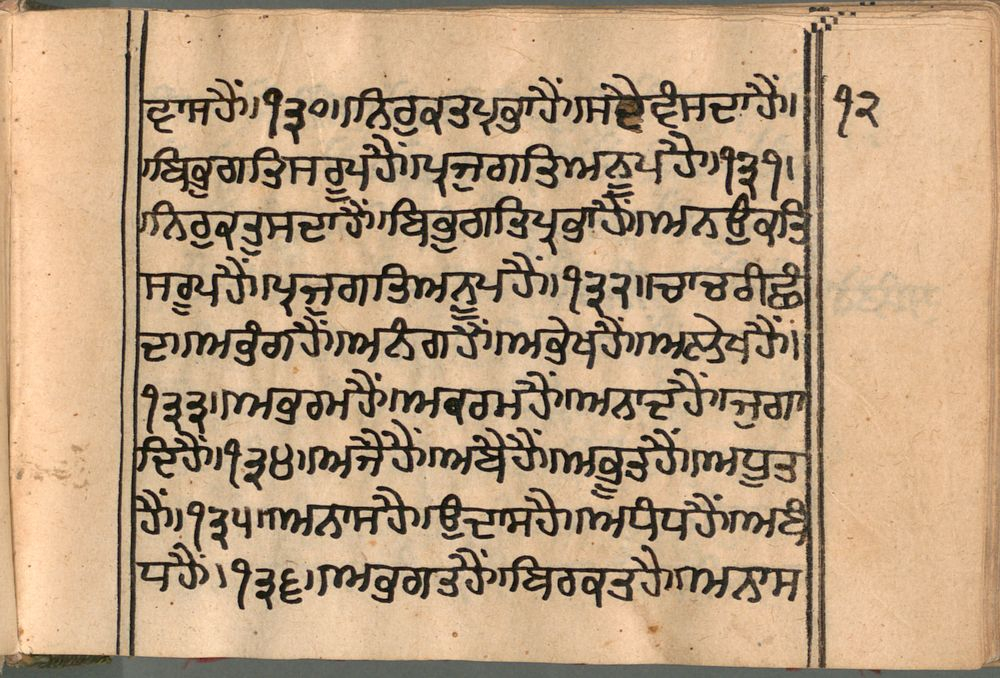 ਦਾਸਹੈਂ॥੧੩੦॥ਨਿਰੁਕਤਪ੍ਰਭਾਹੈਂ॥ਸਦੈਵੰਸਦਾਹੈਂ॥
॥ਬਿਭੁਗਤਿਸਰੂਪਹੈਂ॥ਪ੍ਰਜੁਗਤਿਅਨੂਪਹੈ॥੧੩੧॥
॥ਨਿਰੁਕਤੁਸਦਾਹੈਂ॥ਬਿਭੁਗਤਿਪ੍ਰਭਾਹੈਂ॥ਅਨਉਕਤਿ
ਸਰੂਪਹੈਂ॥ਪ੍ਰਜੁਗਤਿਅਨੂਪਹੈਂ॥੧੩੨॥ਚਾਚਰੀਛੰ
ਦਾ॥ਅਭੰਗਹੈਂ॥ਅਨੰਗਹੈਂ॥ਅਭੇਖਹੈਂ॥ਅਲੇਖਹੈਂ॥
੧੩੩॥ਅਭਰਮਹੈਂ॥ਅਕਰਮਹੈਂ॥ਅਨਾਦਹੈਂ॥ਜੁਗਾ
ਦਿਹੈਂ॥੧੩੪॥ਅਜੈਹੈਂ॥ਅਬੈਹੈਂ॥ਅਭੂਤਹੈਂ॥ਅਧੂਤ
ਹੈਂ॥੧੩੫॥ਅਨਾਸਹੈ॥ਉਦਾਸਹੈ॥ਅਧੰਧਹੈਂ॥ਅਬੰ
ਧਹੈਂ॥੧੩੬॥ਅਭੁਗਤਹੈਂ॥ਬਿਰਕਤਹੈ॥ਅਨਾਸ
੧੨